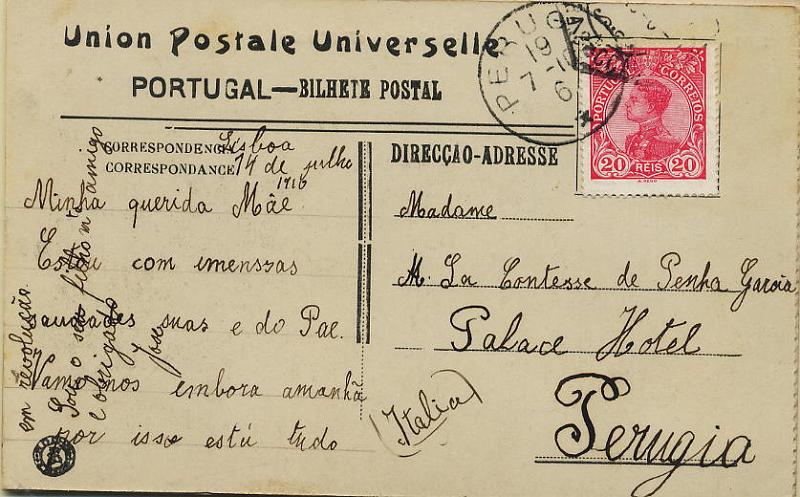 Union Postale Universelle
PORTUGAL—BILHETE POSTAL
PERUG
19
7-
6
PORTUGAL CORREIOS
20 REIS 20
CORRESPONDENCIA
CORRESPONDANCE
Lisboa
14 de julho
1910
Minha querida Mãe
Estou com imenssas
saudades suas e do Pae.
Vamo nos embora amanhã
por isso está tudo
em revolução.
Sou o seu filho m.to amigo
e obrigado
José
DIRECÇÃO-ADRESSE
Madame
M. La Contesse de Penha Garcia
Palace Hotel
Perugia
(Italia)